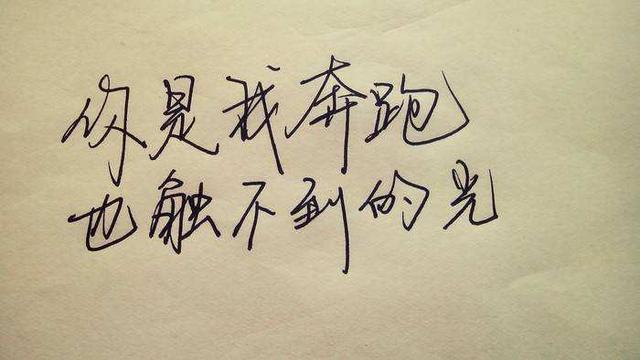 你是我奔跑
也触不到的光